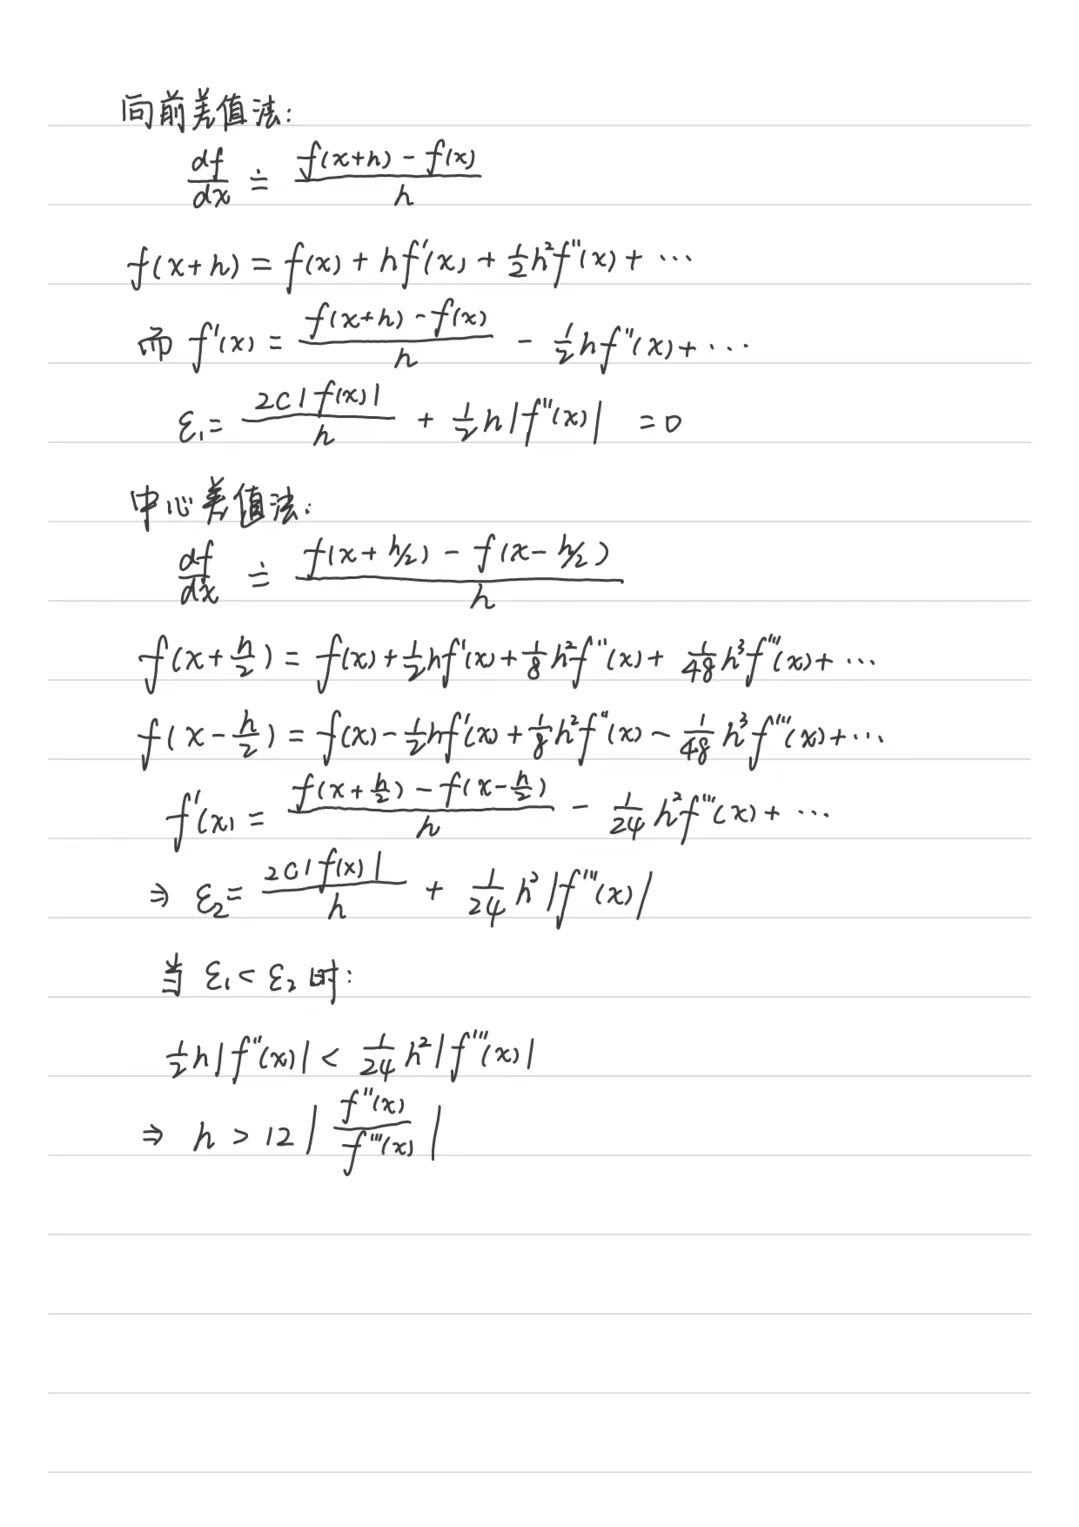 向前差值法:
df/dx ≐ (f(x+h) - f(x))/h
f(x+h) = f(x) + hf'(x) + 1/2 h²f''(x) + ···
而 f'(x) = (f(x+h) - f(x))/h - 1/2 hf''(x) + ···
ε₁ = 2C|f(x)|/h + 1/2 h|f''(x)| = 0
中心差值法:
df/dx ≐ (f(x+h/2) - f(x-h/2))/h
f(x+h/2) = f(x) + 1/2 hf'(x) + 1/8 h²f''(x) + 1/48 h³f'''(x) + ···
f(x-h/2) = f(x) - 1/2 hf'(x) + 1/8 h²f''(x) - 1/48 h³f'''(x) + ···
f'(x) = (f(x+h/2) - f(x-h/2))/h - 1/24 h²f'''(x) + ···
⇒ ε₂ = 2C|f(x)|/h + 1/24 h²|f'''(x)|
当 ε₁ < ε₂ 时:
1/2 h|f''(x)| < 1/24 h²|f'''(x)|
⇒ h > 12|f''(x)/f'''(x)|